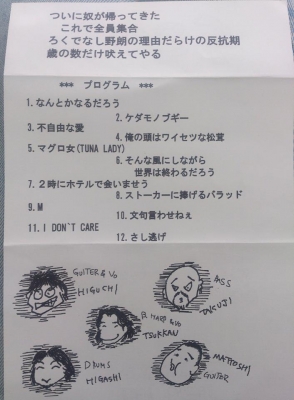 ついに奴が帰ってきた
これで全員集合
ろくでなし野朗の理由だらけの反抗期
歳の数だけ吠えてやる
*** プログラム ***
1.なんとかなるだろう
2.ケダモノブギー
3.不自由な愛
4.俺の頭はワイセツな松茸
5.マグロ女(TUNA LADY)
6.そんな風にしながら
世界は終わるだろう
7.2時にホテルで会いませう
8.ストーカーに捧げるバラッド
9.M
10.文句言わせねぇ
11.I DON`T CARE
12.さし逃げ
GUITER & Vo
HIGUCHI
BASS
TAKUJI
B.HARP & Vo
TSUKKAN
DRUMS
HIGASHI
MATTOSHI
GUITER